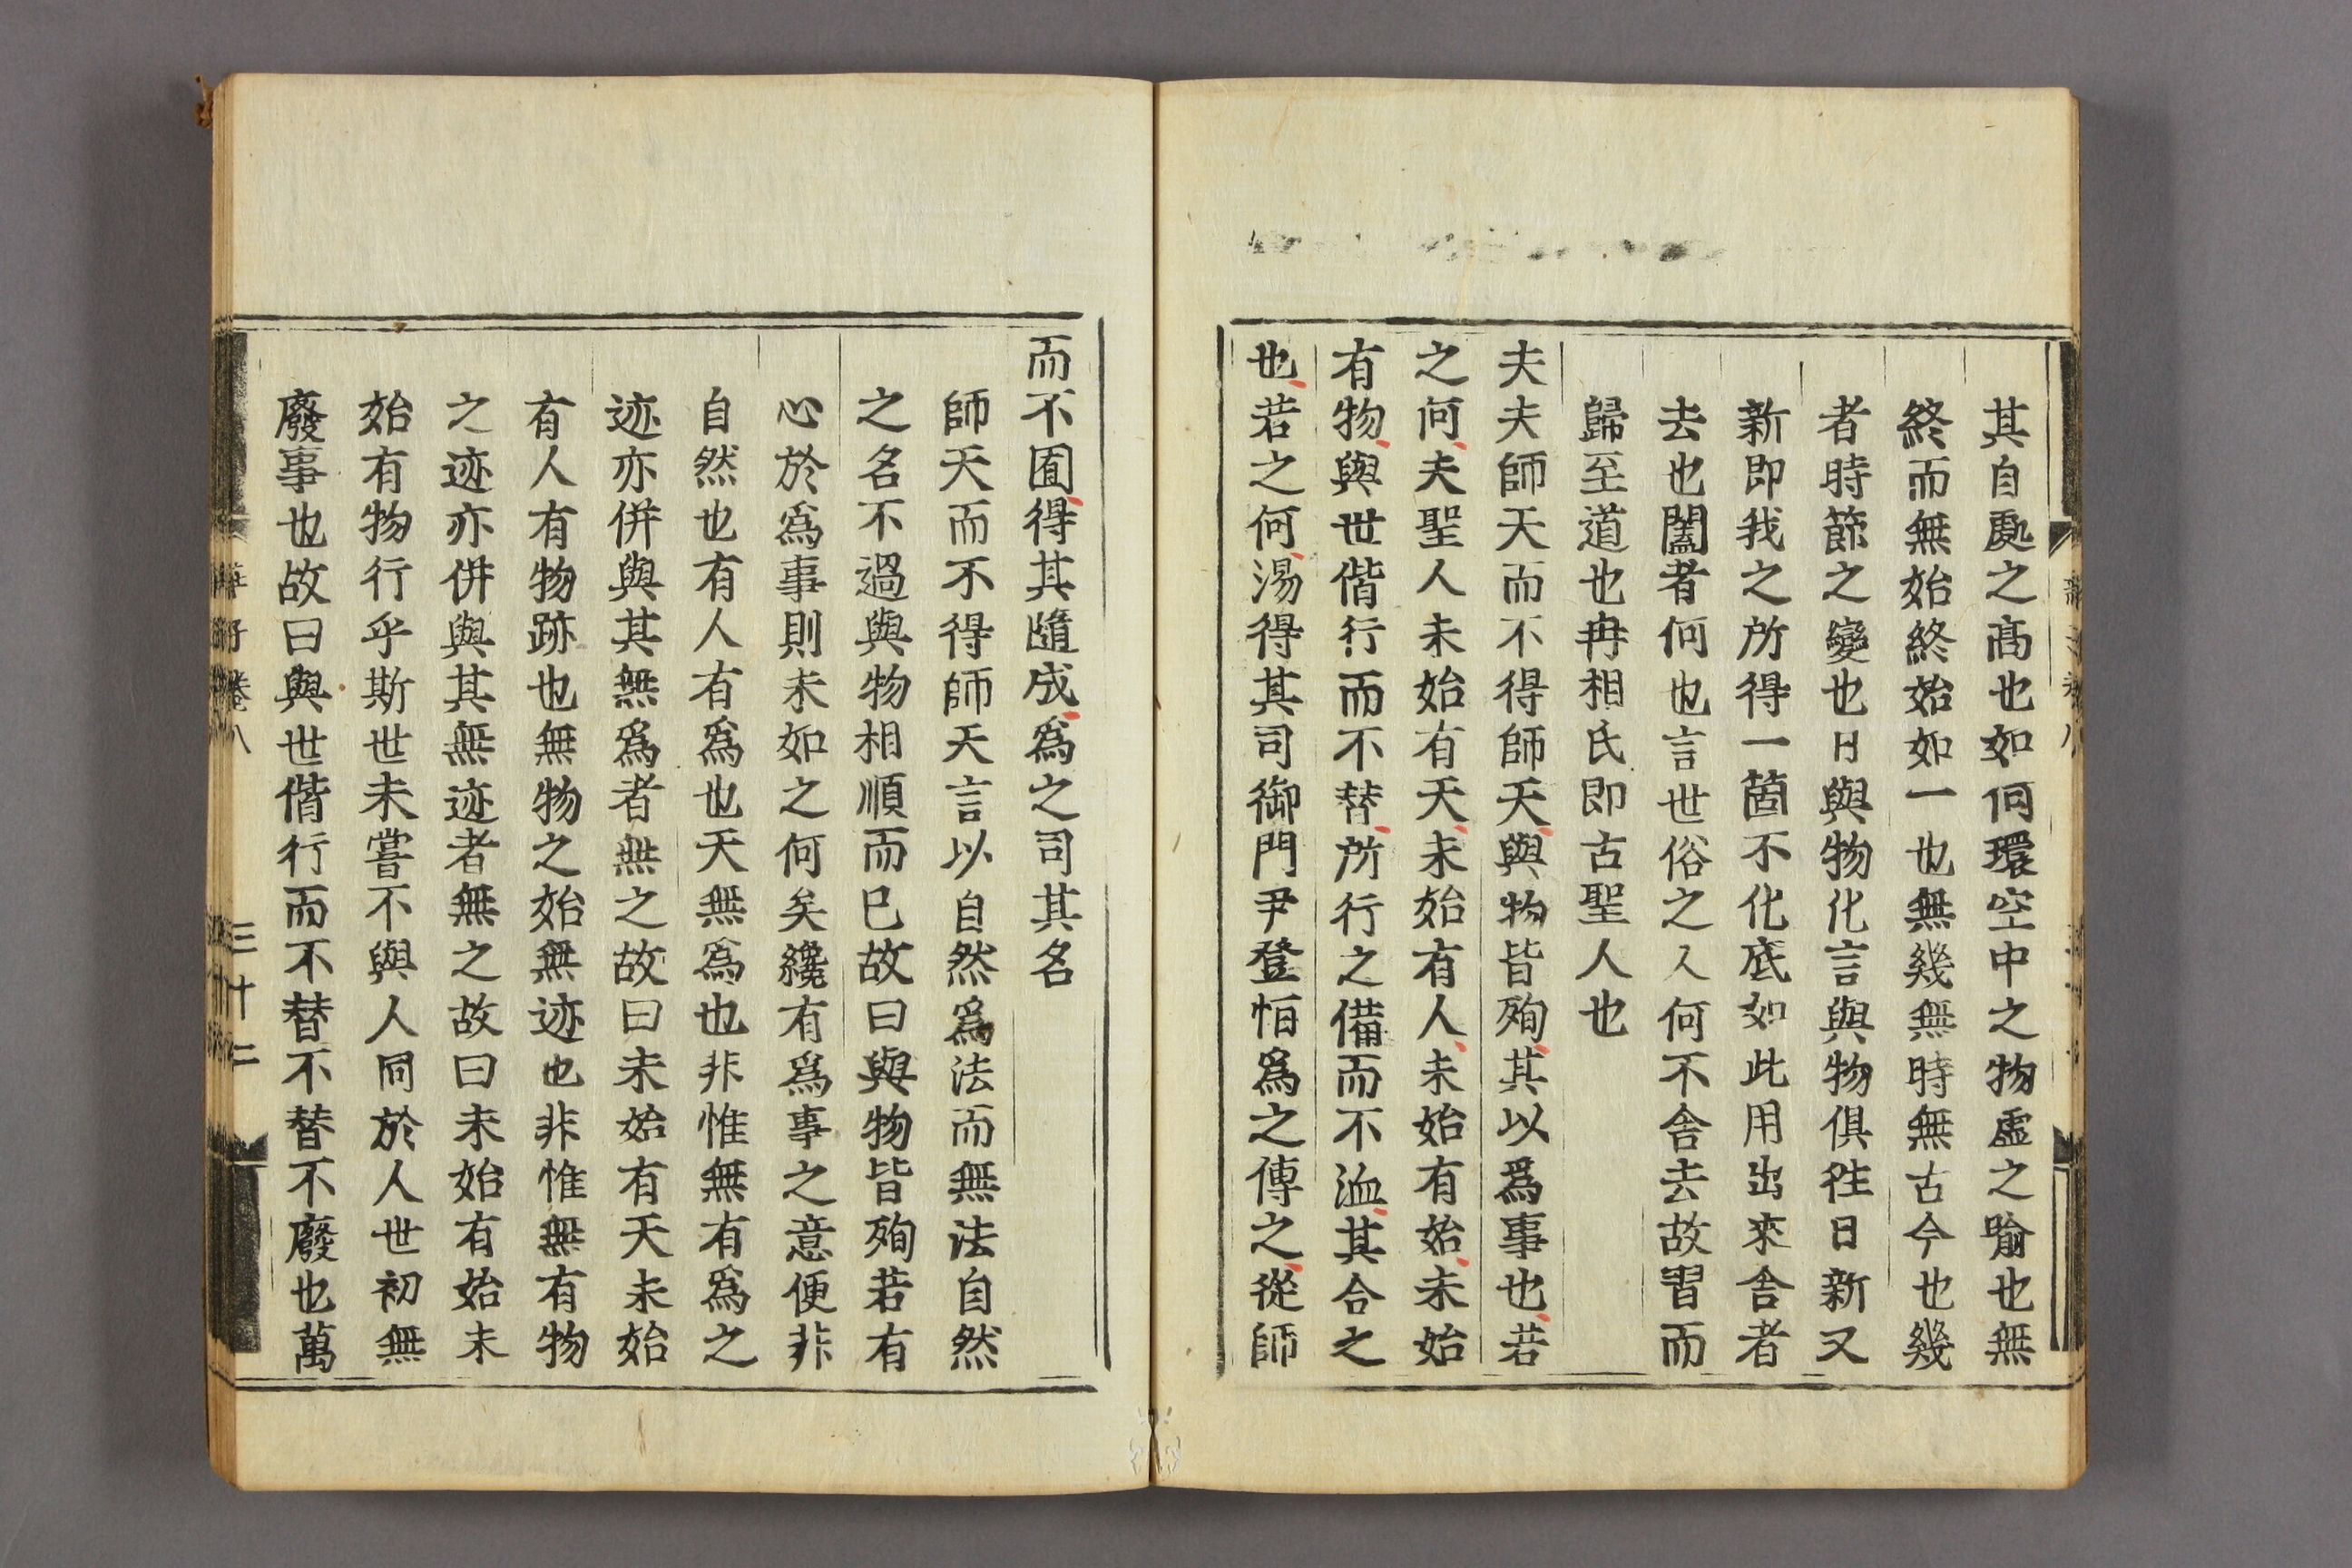 其自處之高也如何環空中之物虛之喻也無
終而無始終始如一也無幾無時無古今也幾
者時節之變也日與物化言與物俱徃日新又
新即我之所得一箇不化底如此用出來舍者
去也闔者何也言世俗之人何不舍去故習而
歸至道也冉相氏即古聖人也
夫夫師天而不得師天與物皆殉其以爲事也若
之何夫聖人未始有天未始有人未始有始未始
有物與世偕行而不替所行之備而不洫其合之
也若之何湯得其司御門尹登恒爲之傅之從師
而不囿得其隨成爲之司其名
師天而不得師天言以自然爲法而無法自然
之名不過與物相順而已故曰與物皆殉若有
心於爲事則未如之何矣纔有爲事之意便非
自然也有人有爲也天無爲也非惟無有爲之
迹亦併與其無爲者無之故曰未始有天未始
有人有物跡也無物之始無迹也非惟無有物
之迹亦併與其無迹者無之故曰未始有始未
始有物行乎斯世未嘗不與人同於人世初無
廢事也故曰與世偕行而不替不替不廢也萬
莊子卷八
三十二